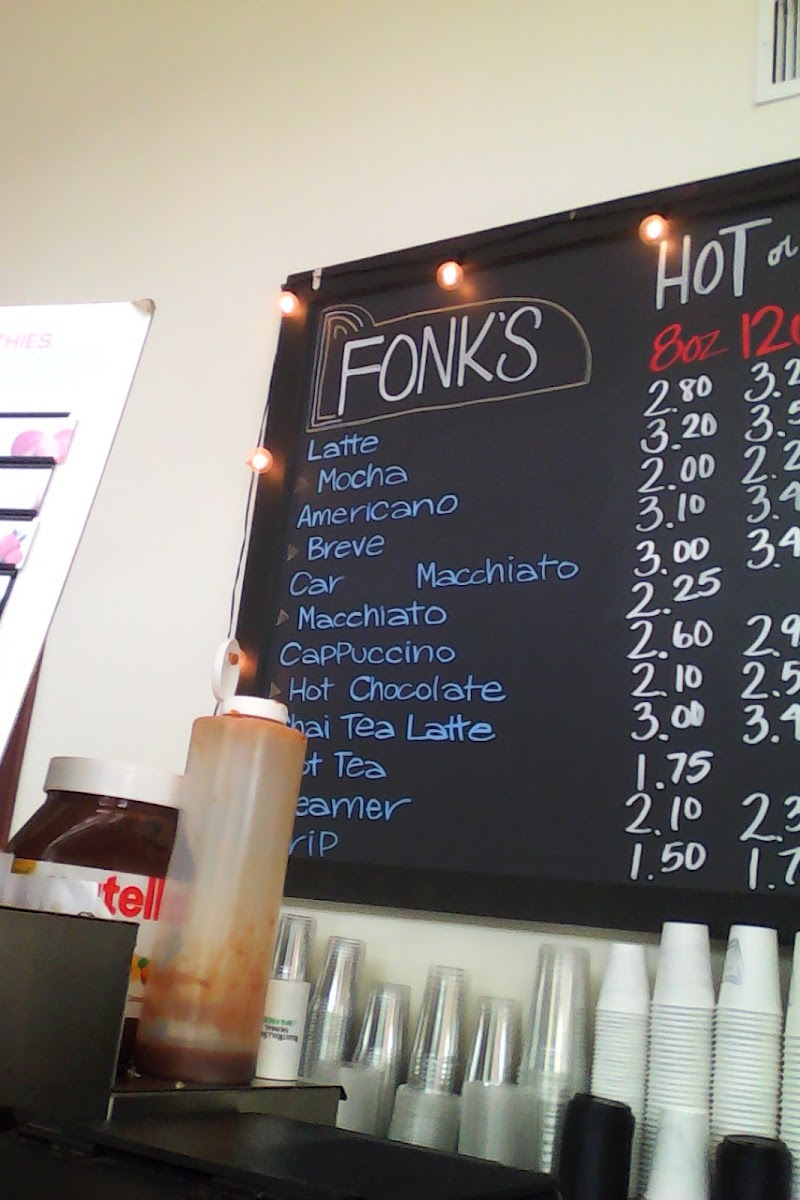 THIES
HOT or
FONK'S
8oz 12o
Latte 2.80 3.2
Mocha 3.20 3.5
Americano 2.00 2.2
Breve 3.10 3.4
Car Macchiato 3.00 3.4
Macchiato 2.25
Cappuccino 2.60 2.9
Hot Chocolate 2.10 2.5
hai Tea Latte 3.00 3.4
ot Tea 1.75
eamer 2.10 2.3
rip 1.50 1.7
tell